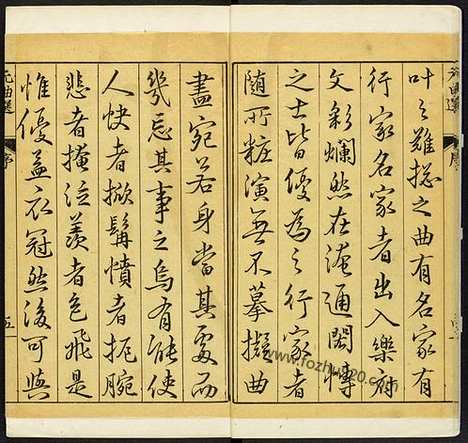 叶之難總之曲有名家有
行家名家者出入樂府
文彩爛然在淹通閎博
之士皆優為之行家者
随所粧演無不摹擬曲
元曲選
序
盡宛若身當其處而
幾忘其事之烏有能使
人快者掀髯憤者扼腕
悲者掩泣羨者色飛是
惟優孟衣冠然後可與
元曲選
序
五
www.fozhu920.com